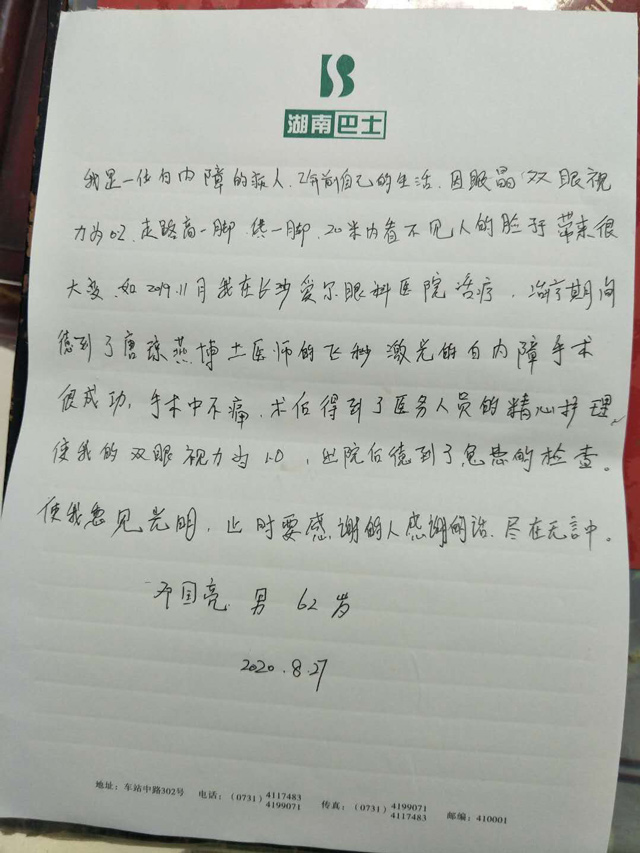 湖南巴士
我是一位白内障的病人.2年前自己的生活.因眼晶双眼视
力为02.走路高一脚低一脚.20米内看不见人的脸于带来很
大变.如2019.11月我在长沙爱尔眼科医院治疗.治疗期间
德到了唐琼燕博士医师的飞秒激光的白内障手术
很成功.手术中不痛.术后得到了医务人员的精心护理
使我的双眼视力为1.0,出院后德到了免费的检查。
使我看见光明,此时要感谢的人感谢的话.尽在无言中。
邓国亮.男 62岁
2020.8.27
地址:车站中路302号 电话:(0731)4117483 4199071 传真:(0731)4199071 4117483 邮编:410001